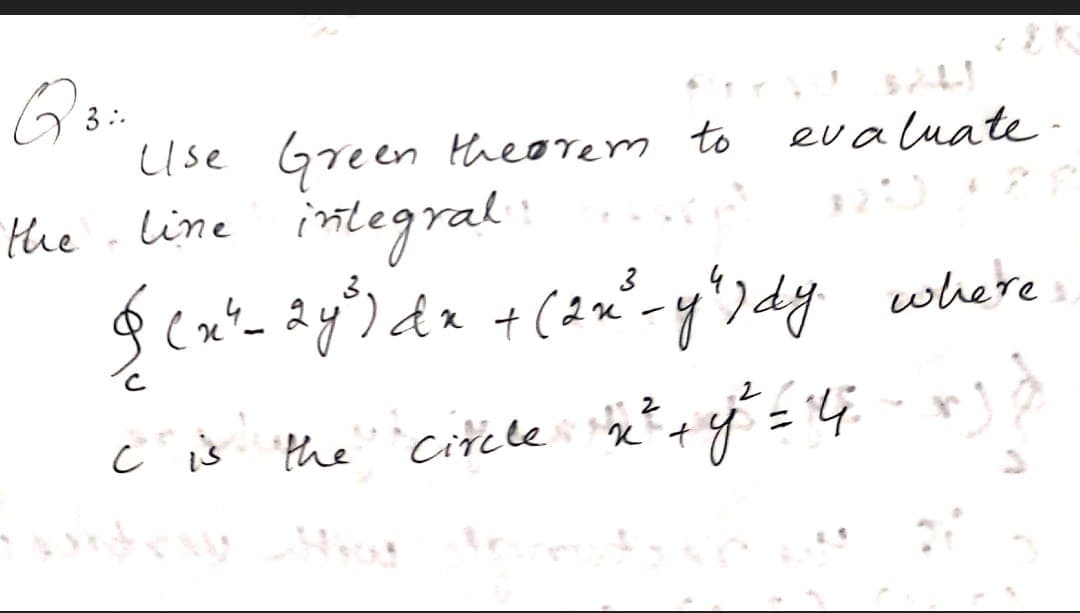 Q3:.
Use Green theorem to evaluate.
the line integral
∮c (x⁴ - 2y³) dx + (2x³ - y⁴) dy where
C is the circle x² + y² = 4